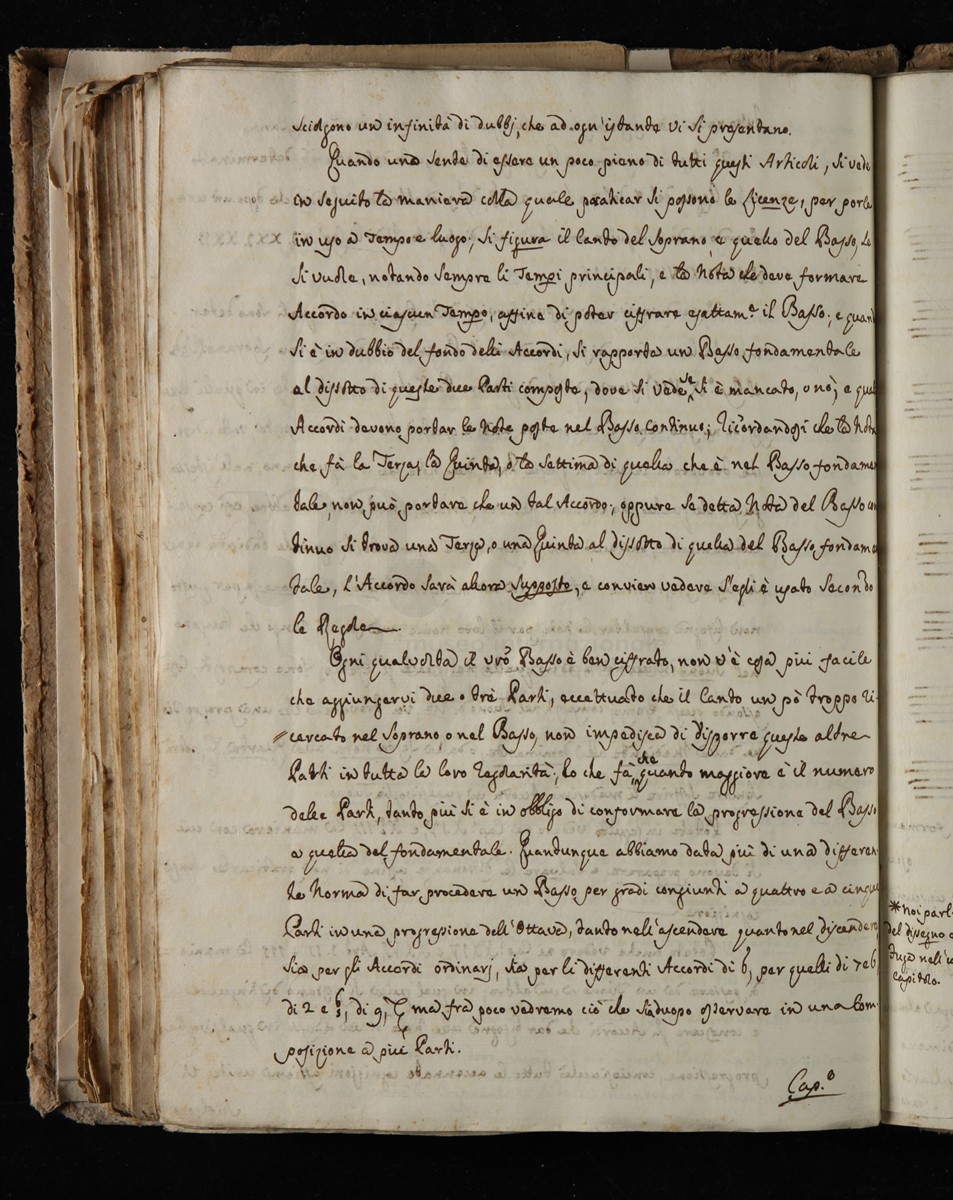 sciolgono un infinità di dubbj, che ad ogn'istante vi si presentano.
Quando uno sente di essere un poco pieno di tutti questi Articoli, si vede
in seguito la maniera colla quale praticar si possono le Licenze, per porle
in uso a Tempo e luogo; si figura il Canto del Soprano e quello del Basso, se
si vuole, notando sempre li Tempi principali, e la Nota che deve formare
Accordo in ciascun Tempo, affine di poter ciffrare esattam.e il Basso; e quan
si è in dubbio del fondo delli Accordi, si rapporta un Basso fondamentale
al dissotto di queste due Parti composte, dove si vede se si è mancato, o nò; e qua
Accordi devono portar le Note poste nel Basso Continuo; ricordandosi che la Nota
che fà la Terza, la Quinta, o la settima di quella che è nel Basso fondame
tale, non può portare che un tal Accordo; oppure se detta Nota del Basso con
tinuo si trova una Terza, o una Quinta al dissotto di quella del Basso fondame
tale, l'Accordo sarà allora supposto, e convien vedere s'egli è usato secondo
le Regole.
Ogni qualvolta il vrō Basso è ben ciffrato, non v'è cosa più facile
che aggiungervi due o trè Parti, eccettuato che il Canto un pò troppo ri-
cercato nel Soprano, o nel Basso, non impedisca di disporre queste altre
Parti in tutta la loro regolarità; lo che fà, che quanto maggiore è il numero
delle Parti, tanto più si è in obbligo di conformare la progressione del Basso
a quella del fondamentale. Quantunque abbiamo data più di una differen
te Norma di far procedere un Basso per gradi congiunti a quattro e a cinque
Parti in una progressione dell'Ottava, tanto nell'ascendere quanto nel discendere
sia per gli Accordi ordinarj, sia per li differenti Accordi di 6, per quelli di 7 e 6
di 2 e 6/5, di 9, ma fra poco vedremo ciò che sia duopo osservare in una Com-
posizione a più Parti.
Cap.o
*Noi parl
del disegno
fuga nell'u
Capitolo.